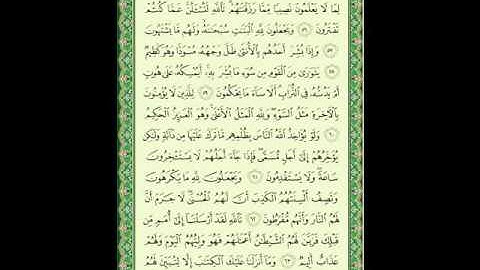 لِمَا لَا يَعْلَمُونَ نَصِيبًا مِّمَّا رَزَقْنَٰهُمْ تَٱللَّهِ لَتُسْـَٔلُنَّ عَمَّا كُنتُمْ
تَفْتَرُونَ ٥٦ وَيَجْعَلُونَ لِلَّهِ ٱلْبَنَٰتِ سُبْحَٰنَهُۥ وَلَهُم مَّا يَشْتَهُونَ
٥٧ وَإِذَا بُشِّرَ أَحَدُهُم بِٱلْأُنثَىٰ ظَلَّ وَجْهُهُۥ مُسْوَدًّا وَهُوَ كَظِيمٌ
٥٨ يَتَوَٰرَىٰ مِنَ ٱلْقَوْمِ مِن سُوٓءِ مَا بُشِّرَ بِهِۦٓ أَيُمْسِكُهُۥ عَلَىٰ هُونٍ
أَمْ يَدُسُّهُۥ فِى ٱلتُّرَابِ أَلَا سَآءَ مَا يَحْكُمُونَ ٥٩ لِلَّذِينَ لَا يُؤْمِنُونَ
بِٱلْأَخِرَةِ مَثَلُ ٱلسَّوْءِ وَلِلَّهِ ٱلْمَثَلُ ٱلْأَعْلَىٰ وَهُوَ ٱلْعَزِيزُ ٱلْحَكِيمُ
٦٠ وَلَوْ يُؤَاخِذُ ٱللَّهُ ٱلنَّاسَ بِظُلْمِهِم مَّا تَرَكَ عَلَيْهَا مِن دَآبَّةٍ وَلَٰكِن
يُؤَخِّرُهُمْ إِلَىٰٓ أَجَلٍ مُّسَمًّى فَإِذَا جَآءَ أَجَلُهُمْ لَا يَسْتَـْٔخِرُونَ
سَاعَةً وَلَا يَسْتَقْدِمُونَ ٦١ وَيَجْعَلُونَ لِلَّهِ مَا يَكْرَهُونَ
وَتَصِفُ أَلْسِنَتُهُمُ ٱلْكَذِبَ أَنَّ لَهُمُ ٱلْحُسْنَىٰ لَا جَرَمَ أَنَّ
لَهُمُ ٱلنَّارَ وَأَنَّهُم مُّفْرَطُونَ ٦٢ تَٱللَّهِ لَقَدْ أَرْسَلْنَآ إِلَىٰٓ أُمَمٍ مِّن
قَبْلِكَ فَزَيَّنَ لَهُمُ ٱلشَّيْطَٰنُ أَعْمَٰلَهُمْ فَهُوَ وَلِيُّهُمُ ٱلْيَوْمَ وَلَهُمْ
عَذَابٌ أَلِيمٌ ٦٣ وَمَآ أَنزَلْنَا عَلَيْكَ ٱلْكِتَٰبَ إِلَّا لِتُبَيِّنَ لَهُمُ